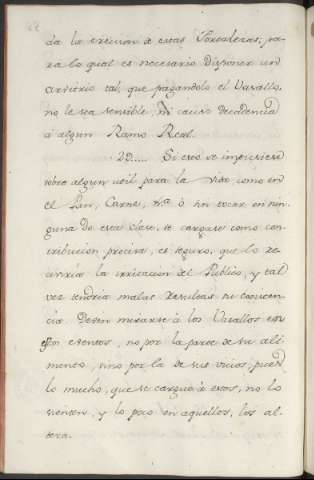 da la ereccion de estas Fortalezas; pa-
ra lo qual es necesario disponer un
arvitrio tal, que pagandolo el Vasallo,
no le sea sensible, ni cause decadencia
á algun Ramo Real.
22..... Si esto se impusiese
sobre algun util para la vida, como en
el Pan, Carne, &ª ó sin tocar en nin-
guna de esta clase, se cargase como con-
tribucion precisa, es seguro, que lo re-
civiria la irritacion del Publico, y tal
vez tendria malas resultas su consequen-
cia. Deven mirarse á los Vasallos en
esentos, no por la parte de su ali-
mento, sino por la de sus vicios, pues
lo mucho, que se cargue á estos, no lo
sienten, y lo poco en aquellos, los al-
tera.